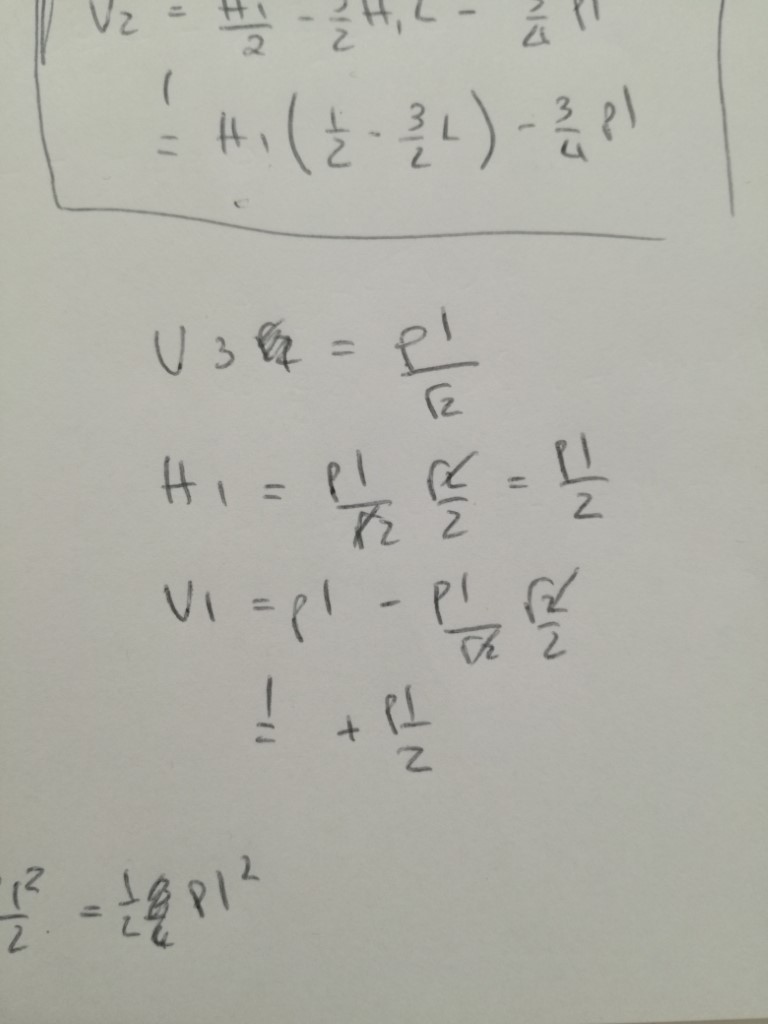 V2 = H1/2 - 3/2 H1 L - 3/4 pl
= H1 ( 1/2 - 3/2 L ) - 3/4 pl
V3 = pl/√2
H1 = pl/√2 √2/2 = pl/2
V1 = pl - pl/√2 √2/2
= + pl/2
l²/2 = 1/2 pl²